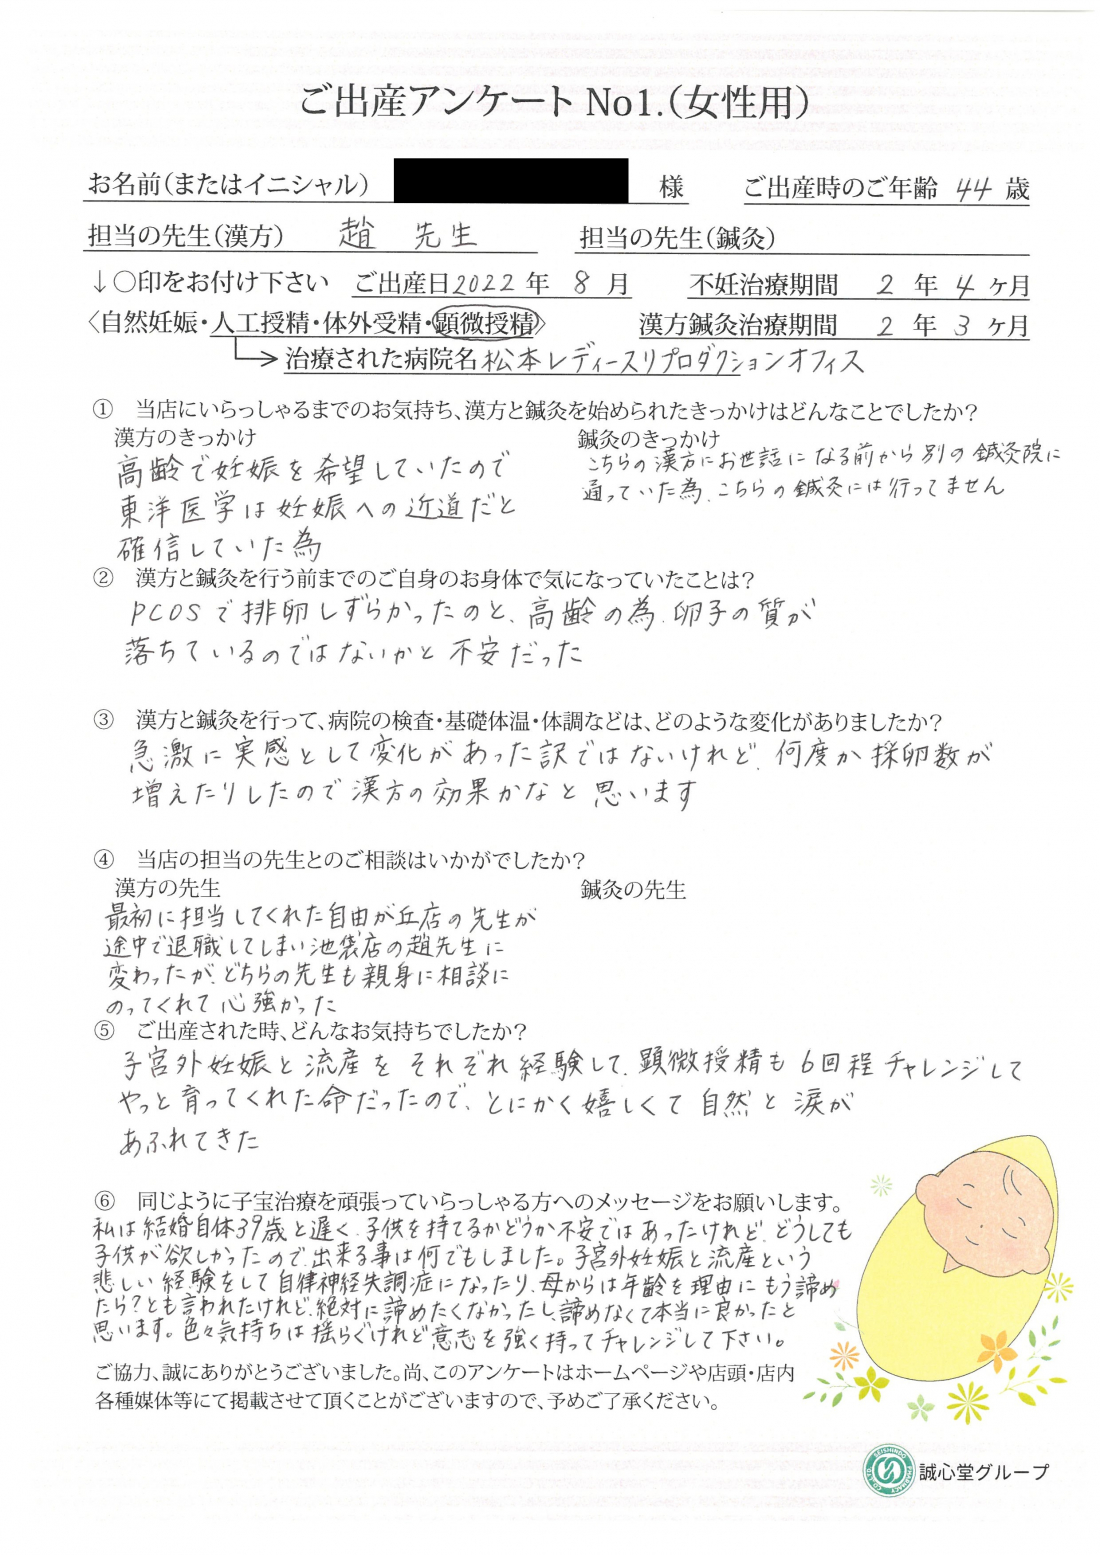 ご出産アンケート No1.（女性用）
お名前（またはイニシャル） 様 ご出産時のご年齢 44 歳
担当の先生（漢方） 趙 先生 担当の先生（鍼灸）
↓○印をお付け下さい ご出産日2022年 8月 不妊治療期間 2年 4ヶ月
〈自然妊娠・人工授精・体外受精・顕微授精〉 漢方鍼灸治療期間 2年 3ヶ月
治療された病院名 松本レディースリプロダクションオフィス
① 当店にいらっしゃるまでのお気持ち、漢方と鍼灸を始められたきっかけはどんなことでしたか？
漢方のきっかけ
高齢で妊娠を希望していたので
東洋医学は妊娠への近道だと
確信していた為
鍼灸のきっかけ
こちらの漢方にお世話になる前から別の鍼灸院に
通っていた為、こちらの鍼灸には行ってません
② 漢方と鍼灸を行う前までのご自身のお身体で気になっていたことは？
PCOSで排卵しずらかったのと、高齢の為、卵子の質が
落ちているのではないかと不安だった
③ 漢方と鍼灸を行って、病院の検査・基礎体温・体調などは、どのような変化がありましたか？
急激に実感として変化があった訳ではないけれど、何度か採卵数が
増えたりしたので漢方の効果かなと思います
④ 当店の担当の先生とのご相談はいかがでしたか？
漢方の先生 鍼灸の先生
最初に担当してくれた自由が丘店の先生が
途中で退職してしまい池袋店の趙先生に
変わったが、どちらの先生も親身に相談に
のってくれて心強かった
⑤ ご出産された時、どんなお気持ちでしたか？
子宮外妊娠と流産をそれぞれ経験して、顕微授精も6回程チャレンジして
やっと育ってくれた命だったので、とにかく嬉しくて自然と涙が
あふれてきた
⑥ 同じように子宝治療を頑張っていらっしゃる方へのメッセージをお願いします。
私は結婚自体39歳と遅く、子供を持てるかどうか不安ではあったけれど、どうしても
子供が欲しかったので出来る事は何でもしました。子宮外妊娠と流産という
悲しい経験をして自律神経失調症になったり、母からは年齢を理由にもう諦め
たら？とも言われたけれど、絶対に諦めたくなかったし、諦めなくて本当に良かったと
思います。色々気持ちは揺らぐけれど意志を強く持ってチャレンジして下さい。
ご協力、誠にありがとうございました。尚、このアンケートはホームページや店頭・店内
各種媒体等にて掲載させて頂くことがございますので、予めご了承ください。
誠心堂グループ